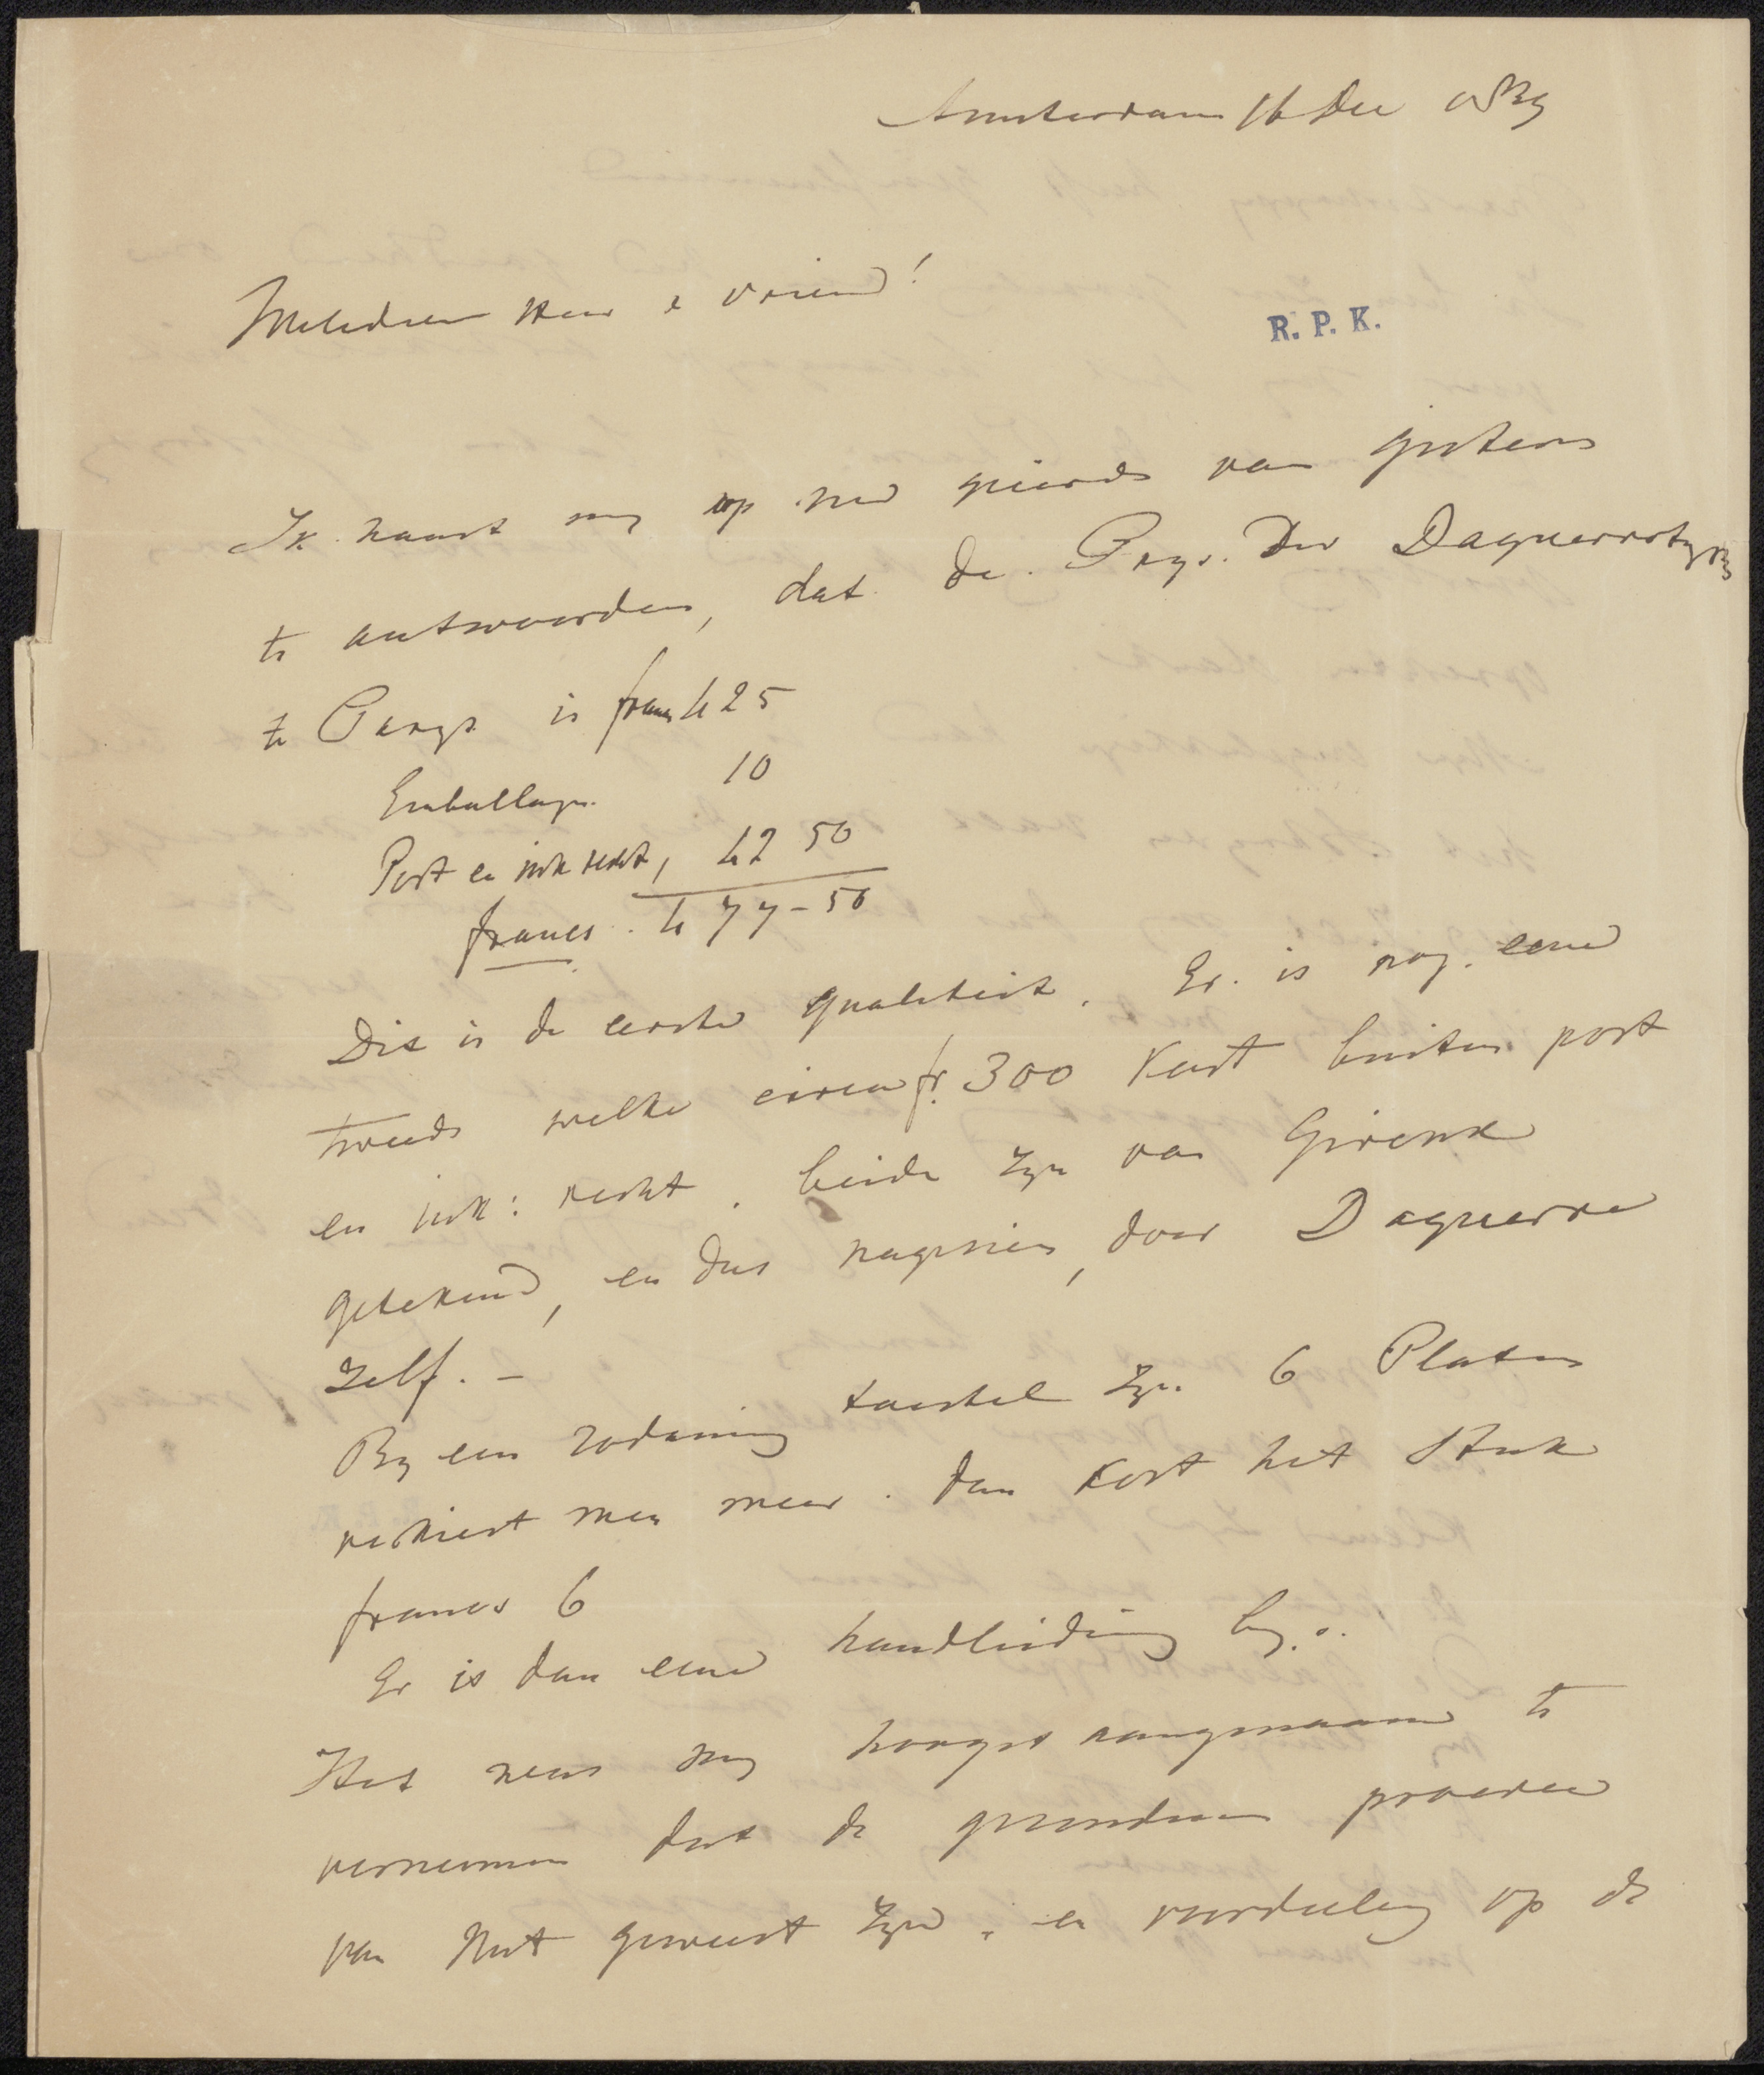 Amsterdam 16 Dec 1839
Weledele Heer & vriend!
R. P. K.
Ik haast my op uwe geëerde van gisteren
te antwoorden, dat de Prys der Daguerrotype
te Parys is francs 425
Emballage. 10
Post en ink recht, 42 50
francs. 477-50
Dit is de eerste qualiteit. Er is nog eene
tweede welke circa fr. 300 kost buiten post
en ink: recht. beide zyn van Giroux
getekend, en dus nagezien, door Daguerre
zelf. -
By een zodanig toestel zyn 6 Platen
verkiest men meer. dan kost het stuk
francs 6
Er is dan eene handleiding by.
Het was my hoogst aangenaam te
vernemen dat de gezondene proeven
van Nut geweest zyn. en voordeelig op de